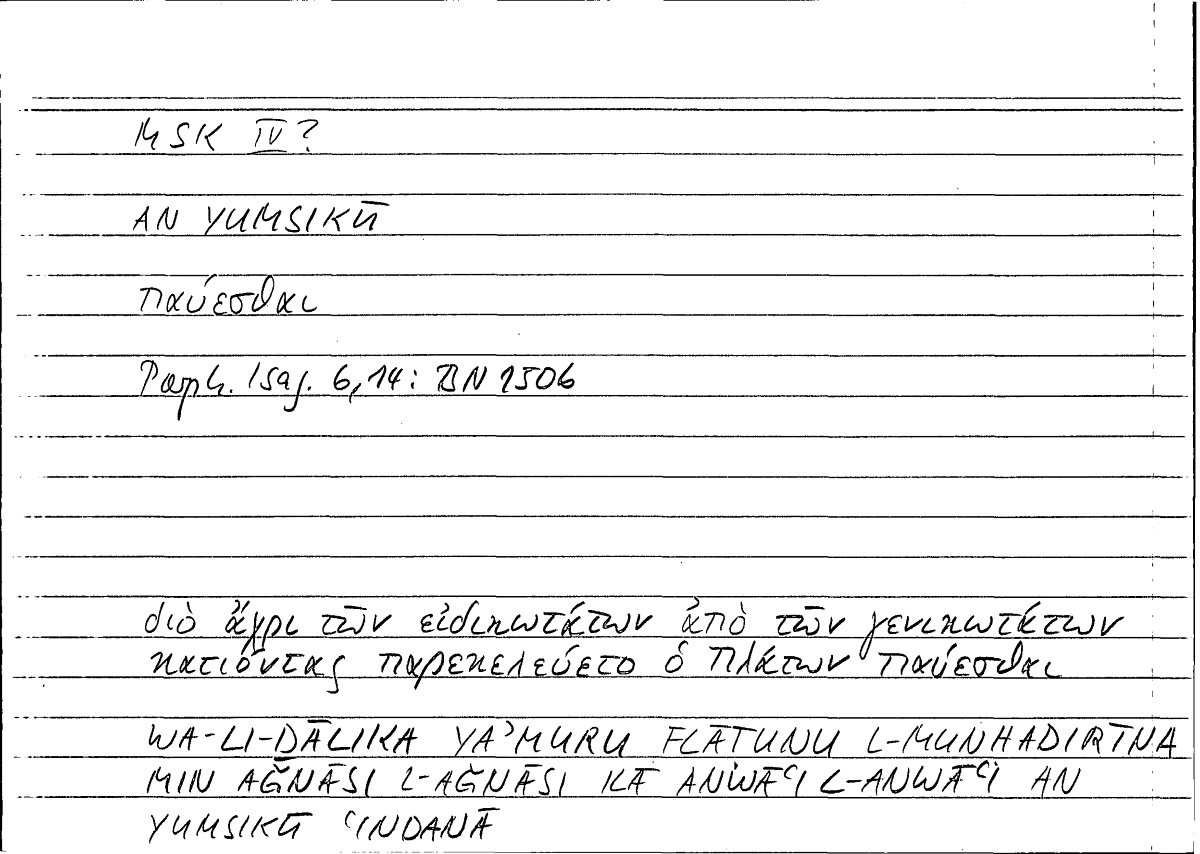 MSK IV?
AN YUMSIKŪ
παύεσθαι
Porph. Isag. 6,14: BN 1506
διὸ ἄχρι τῶν εἰδικωτάτων ἀπὸ τῶν γενικωτάτων
κατιόντας παρεκελεύετο ὁ Πλάτων παύεσθαι
WA-LI-ḎĀLIKA YAʾMURU FLĀṬUNU L-MUNḤADIRĪNA
MIN AǦNĀSI L-AǦNĀSI ILĀ ANWĀʿI L-ANWĀʿI AN
YUMSIKŪ ʿINDAHĀ